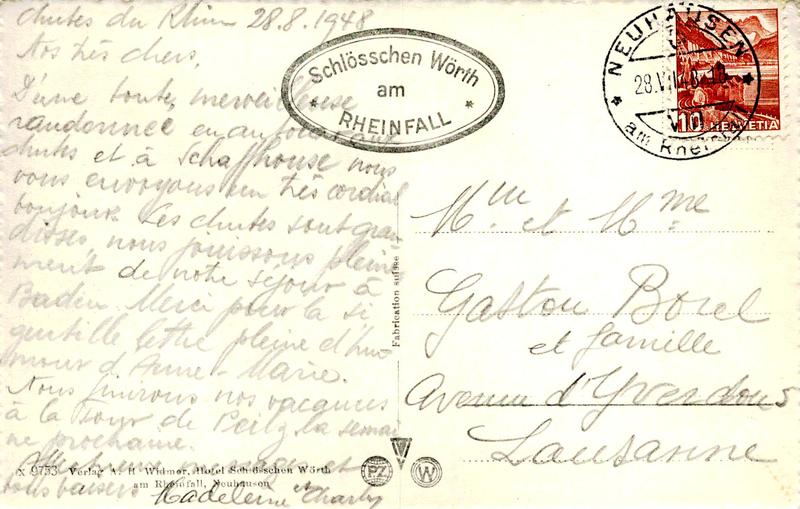 chutes du Rhin 28.8.1948
Nos très chers,
D'une toute merveilleuse
randonnée en autocar aux
chutes et à Schaffhouse nous
vous envoyons un très cordial
bonjour. Les chutes sont gran
dioses, nous jouissons pleine
ment de notre séjour à
Baden. Merci pour la si
gentille lettre pleine d'hu
mour d'Anne-Marie.
Nous finirons nos vacances
à la Tour de Peilz la semai
ne prochaine.
tous baisers
Madeleine et Charly
x 9753 Verlag A. H Widmer, Hotel Schlösschen Wörth
am Rheinfall, Neuhausen
Schlösschen Wörth
am
* RHEINFALL *
Fabrication suisse
PZ
W
NEUHAUSEN
28.VIII.48
am Rheinfall
10 HELVETIA
Mr et Mme
Gaston Borel
et famille
Avenue d'Yverdon 5
Lausanne